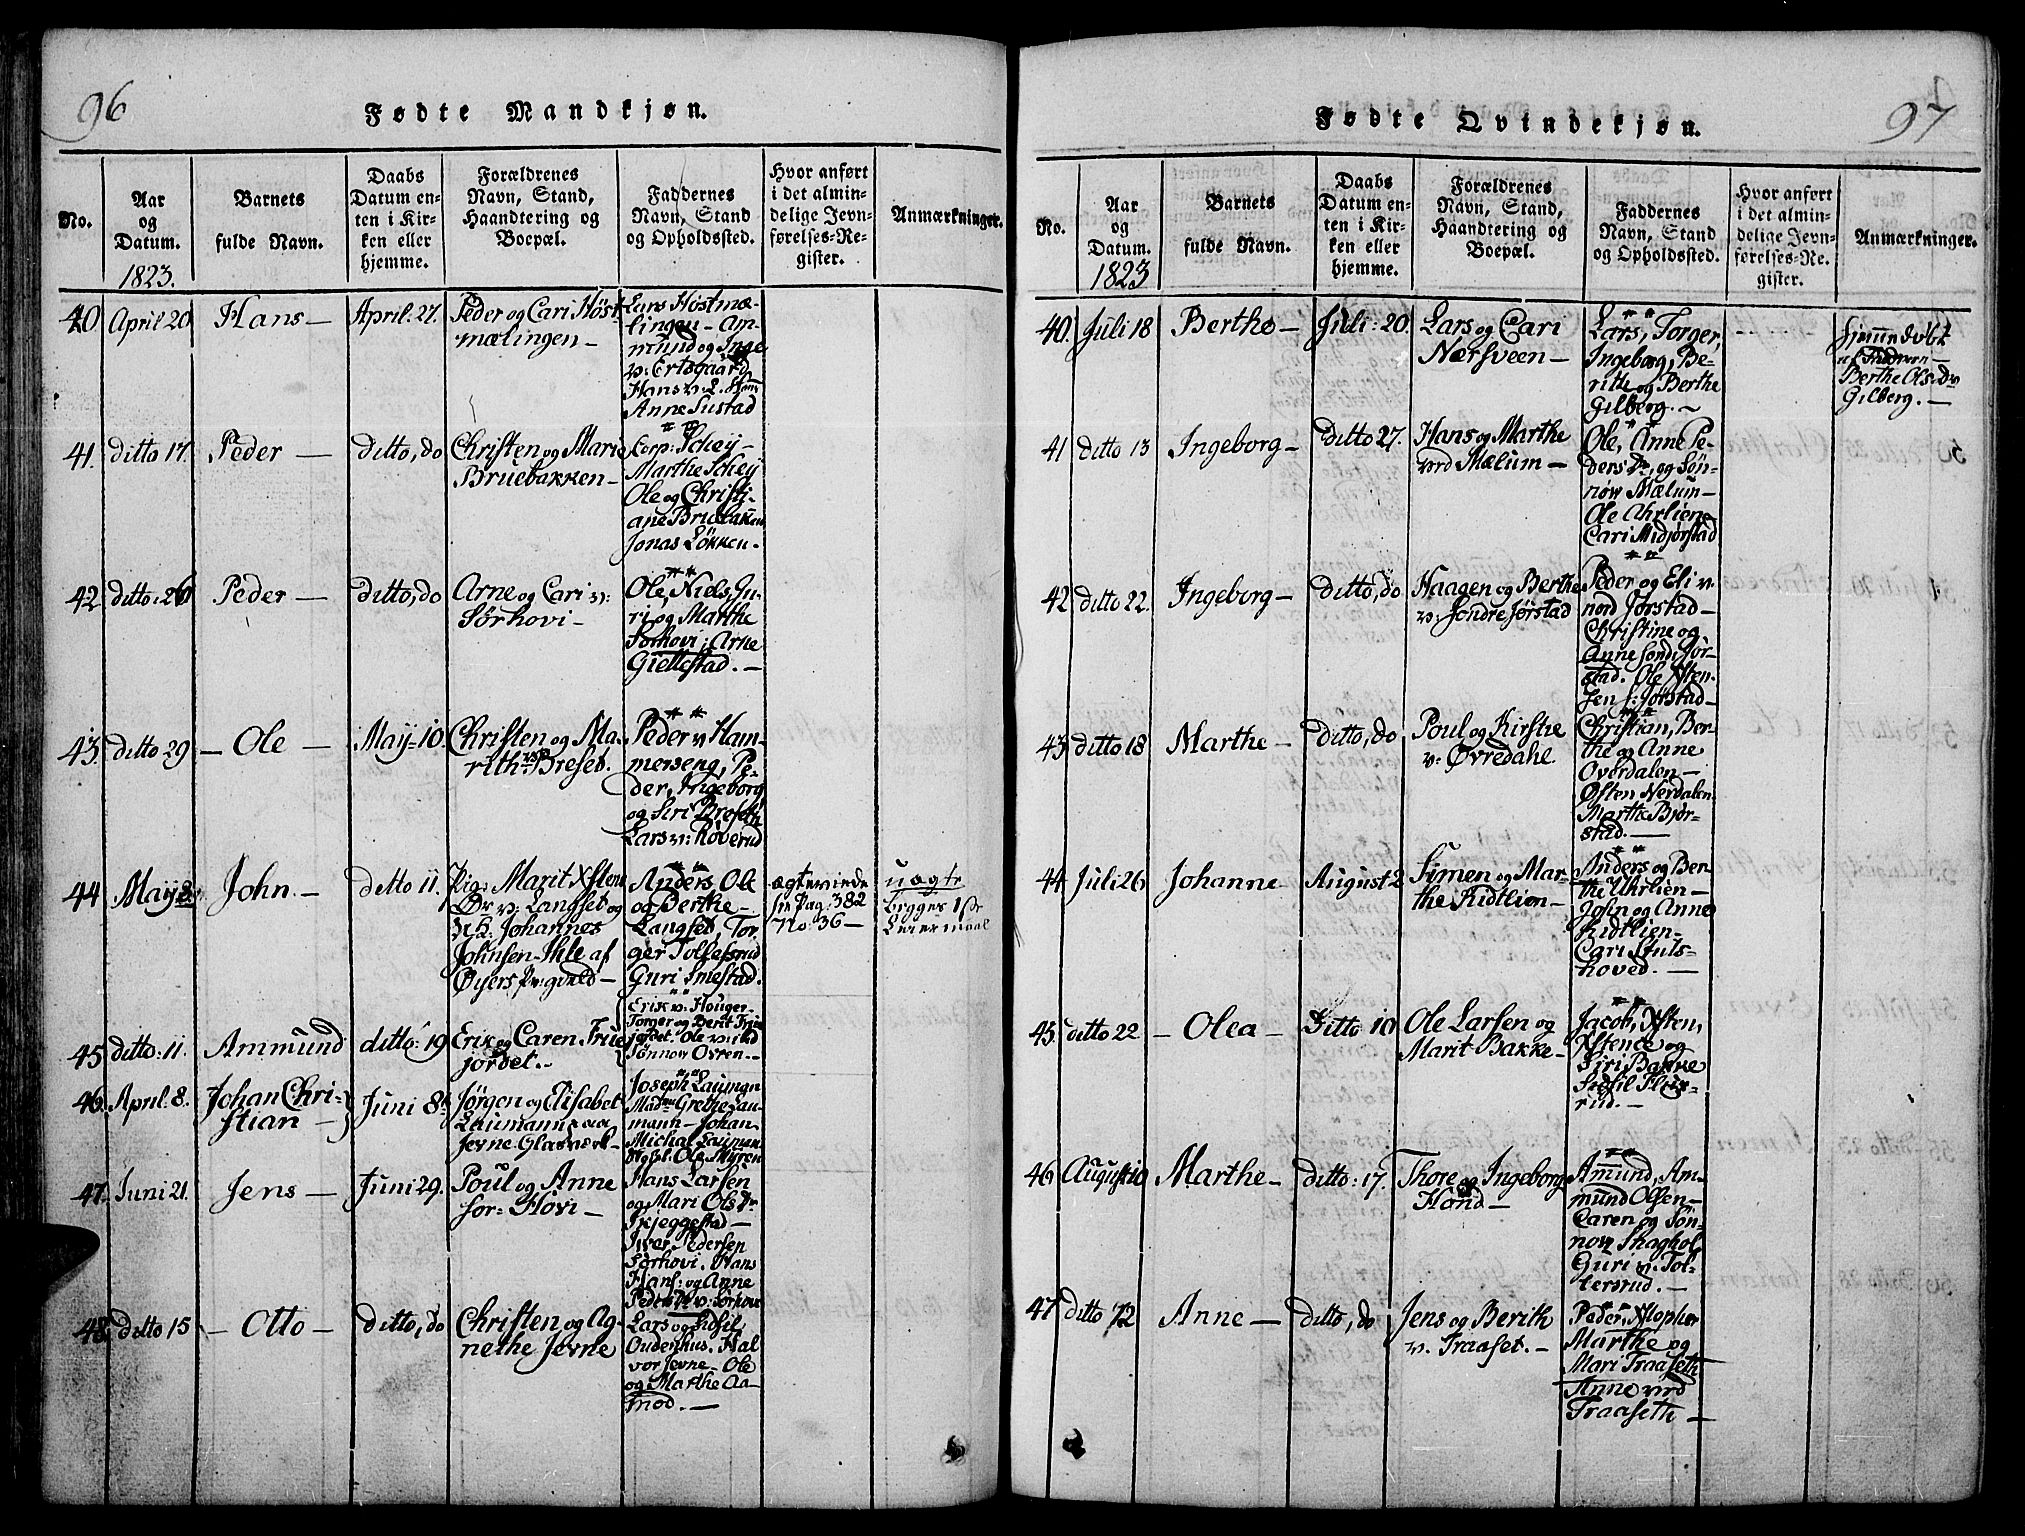 96
Fødte Mandkjøn.
No.
Aar
og
Datum.
1823.
Barnets
fulde Navn.
Daabs
Datum en-
ten i Kir-
ken eller
hjemme.
Forældrenes
Navn, Stand,
Haandtering og
Boepæl.
Faddernes
Navn, Stand
og Opholdssted.
Hvor anført
i det almin-
delige Jevn-
førelses-Re-
gister.
Anmærkninger.
40. April 20 Hans — April. 27.
Peder og Cari Høst-
mælingen —
Lars Høstmæ-
lingen — Am-
mund og Inge
v: Ertsgaard
Hans
Anne Sustad
41. ditto 17. Peder — ditto, do
Christen og Marie
Bruebakken —
Corp: Schey —
Marthe Schey
Ole og Christi-
ane Bruebakken
Jonas Løkken.
42. ditto: 26 Peder — ditto, do
Arne og Cari v:
Sørhovi —
Ole, Niels, Ju-
ri og Marthe
Sørhovi; Arne
Giellestad. —
43. ditto 29 — Ole — May = 10.
Christen og Ma-
rith v: Breset.
Peder v: Ham-
merseng, Pe-
der, Ingeborg
og Siri Breseth
Lars v: Røverud
44 May 8. John. — ditto 11.
Pig: Marit Xstens
Dr v: Langset og
Johannes
Johnsen Ihle af
Øyers Pr: gield —
Anders, Ole
og Berthe
Langset, Tor-
ger Tollefsrud
Guri Smestad.
ægteviede
Pag: 382
No: 36 —
uægte
begges 1ste
Leiermaal
45 ditto: 11. Ammund ditto: 19
Erik og Caren Frue-
jordet. —
Erik v: Houger
Torger og Berit Frue-
jordet. Ole
Sønnow Osren —
46. April: 8. Johan Chri-
stian — Juni 8
Jørgen og Elisabet
Laumann
Jevne Glasværk —
Joseph Lauman
Mad: Grethe Lau-
mann — Johan
Michal Lauman
Ole Myren
47. Juni 21. Jens — Juni 29.
Poul og Anne
Sør = Hovi —
Hans Larsen
og Mari Ols Dr
Skjeggestad —
Iver Pedersen
Sørhovi. Hans
Hans: og Anne
Peders Dr v: Sørhovi
48. ditto 15 — Otto — ditto, do
Christen og Ag-
nethe Jevne
Lars og
Ouderhus. Hal
vor Jevne — Ole
og Marthe Aa-
mod. —
97
Fødte Qvindekjøn.
No.
Aar
og
Datum.
1823
Barnets
fulde Navn.
Daabs
Datum en-
ten i Kir-
ken eller
hjemme.
Forældrenes
Navn, Stand,
Haandtering og
Boepæl.
Faddernes
Navn, Stand
og Opholdssted.
Hvor anført
i det almin-
delige Jevn-
førelses-Re-
gister.
Anmærkninger.
40. Juli 18 Berthe — Juli: 20.
Lars og Cari
Nærsveen —
Lars, Torger,
Ingeborg, Be-
ritte og Berthe
Gilberg. —
hjemmedøbt
af
Berthe Ols Dr
Gilberg. —
41 ditto 13 Ingeborg — ditto 27.
Hans og Marthe
Mælum —
Ole, Anne Pe-
ders Dr, og Søn-
now Mælum —
Ole Uhrlien
Cari Midjørstad
42 ditto 22. Ingeborg — ditto, do
Haagen og Berthe
v: Søndre Jørstad
Peder og Eli v:
nord Jørstad —
Christine og
Anne Sønd: Jør-
stad. Ole Xsten-
sen S: Jørstad —
43 ditto 18 Marthe — ditto, do
Poul og Kirsthe
v: Øvredahl.
Christian, Ber-
the og Anne
Overdalen —
Østen Nerdalen
Marthe Bjør-
stad. —
44 Juli 26 Johanne — August 2
Simen og Mar-
the Kidtlien —
Anders og Ber-
the Uhrlien —
John og Anne
Kidtlien —
Cari Stuls-
hoved. —
45. ditto 22 — Olea — ditto 10
Ole Larsen og
Marit Bakke —
Jacob, Xsten,
Xstence og
Siri Bakke
Sidsil
rud. —
46 August 10 Marthe — ditto: 17.
Thore og Ingeborg
Hond —
Amund, Am-
mund Olsen —
Caren og Søn-
now
Guri v: Tol-
lersrud. —
47 ditto 12 Anne — ditto, do
Jens og Berith
v. Traaset. —
Peder, Xstopher
Marthe og
Mari Traaseth
Anne
Traaseth —